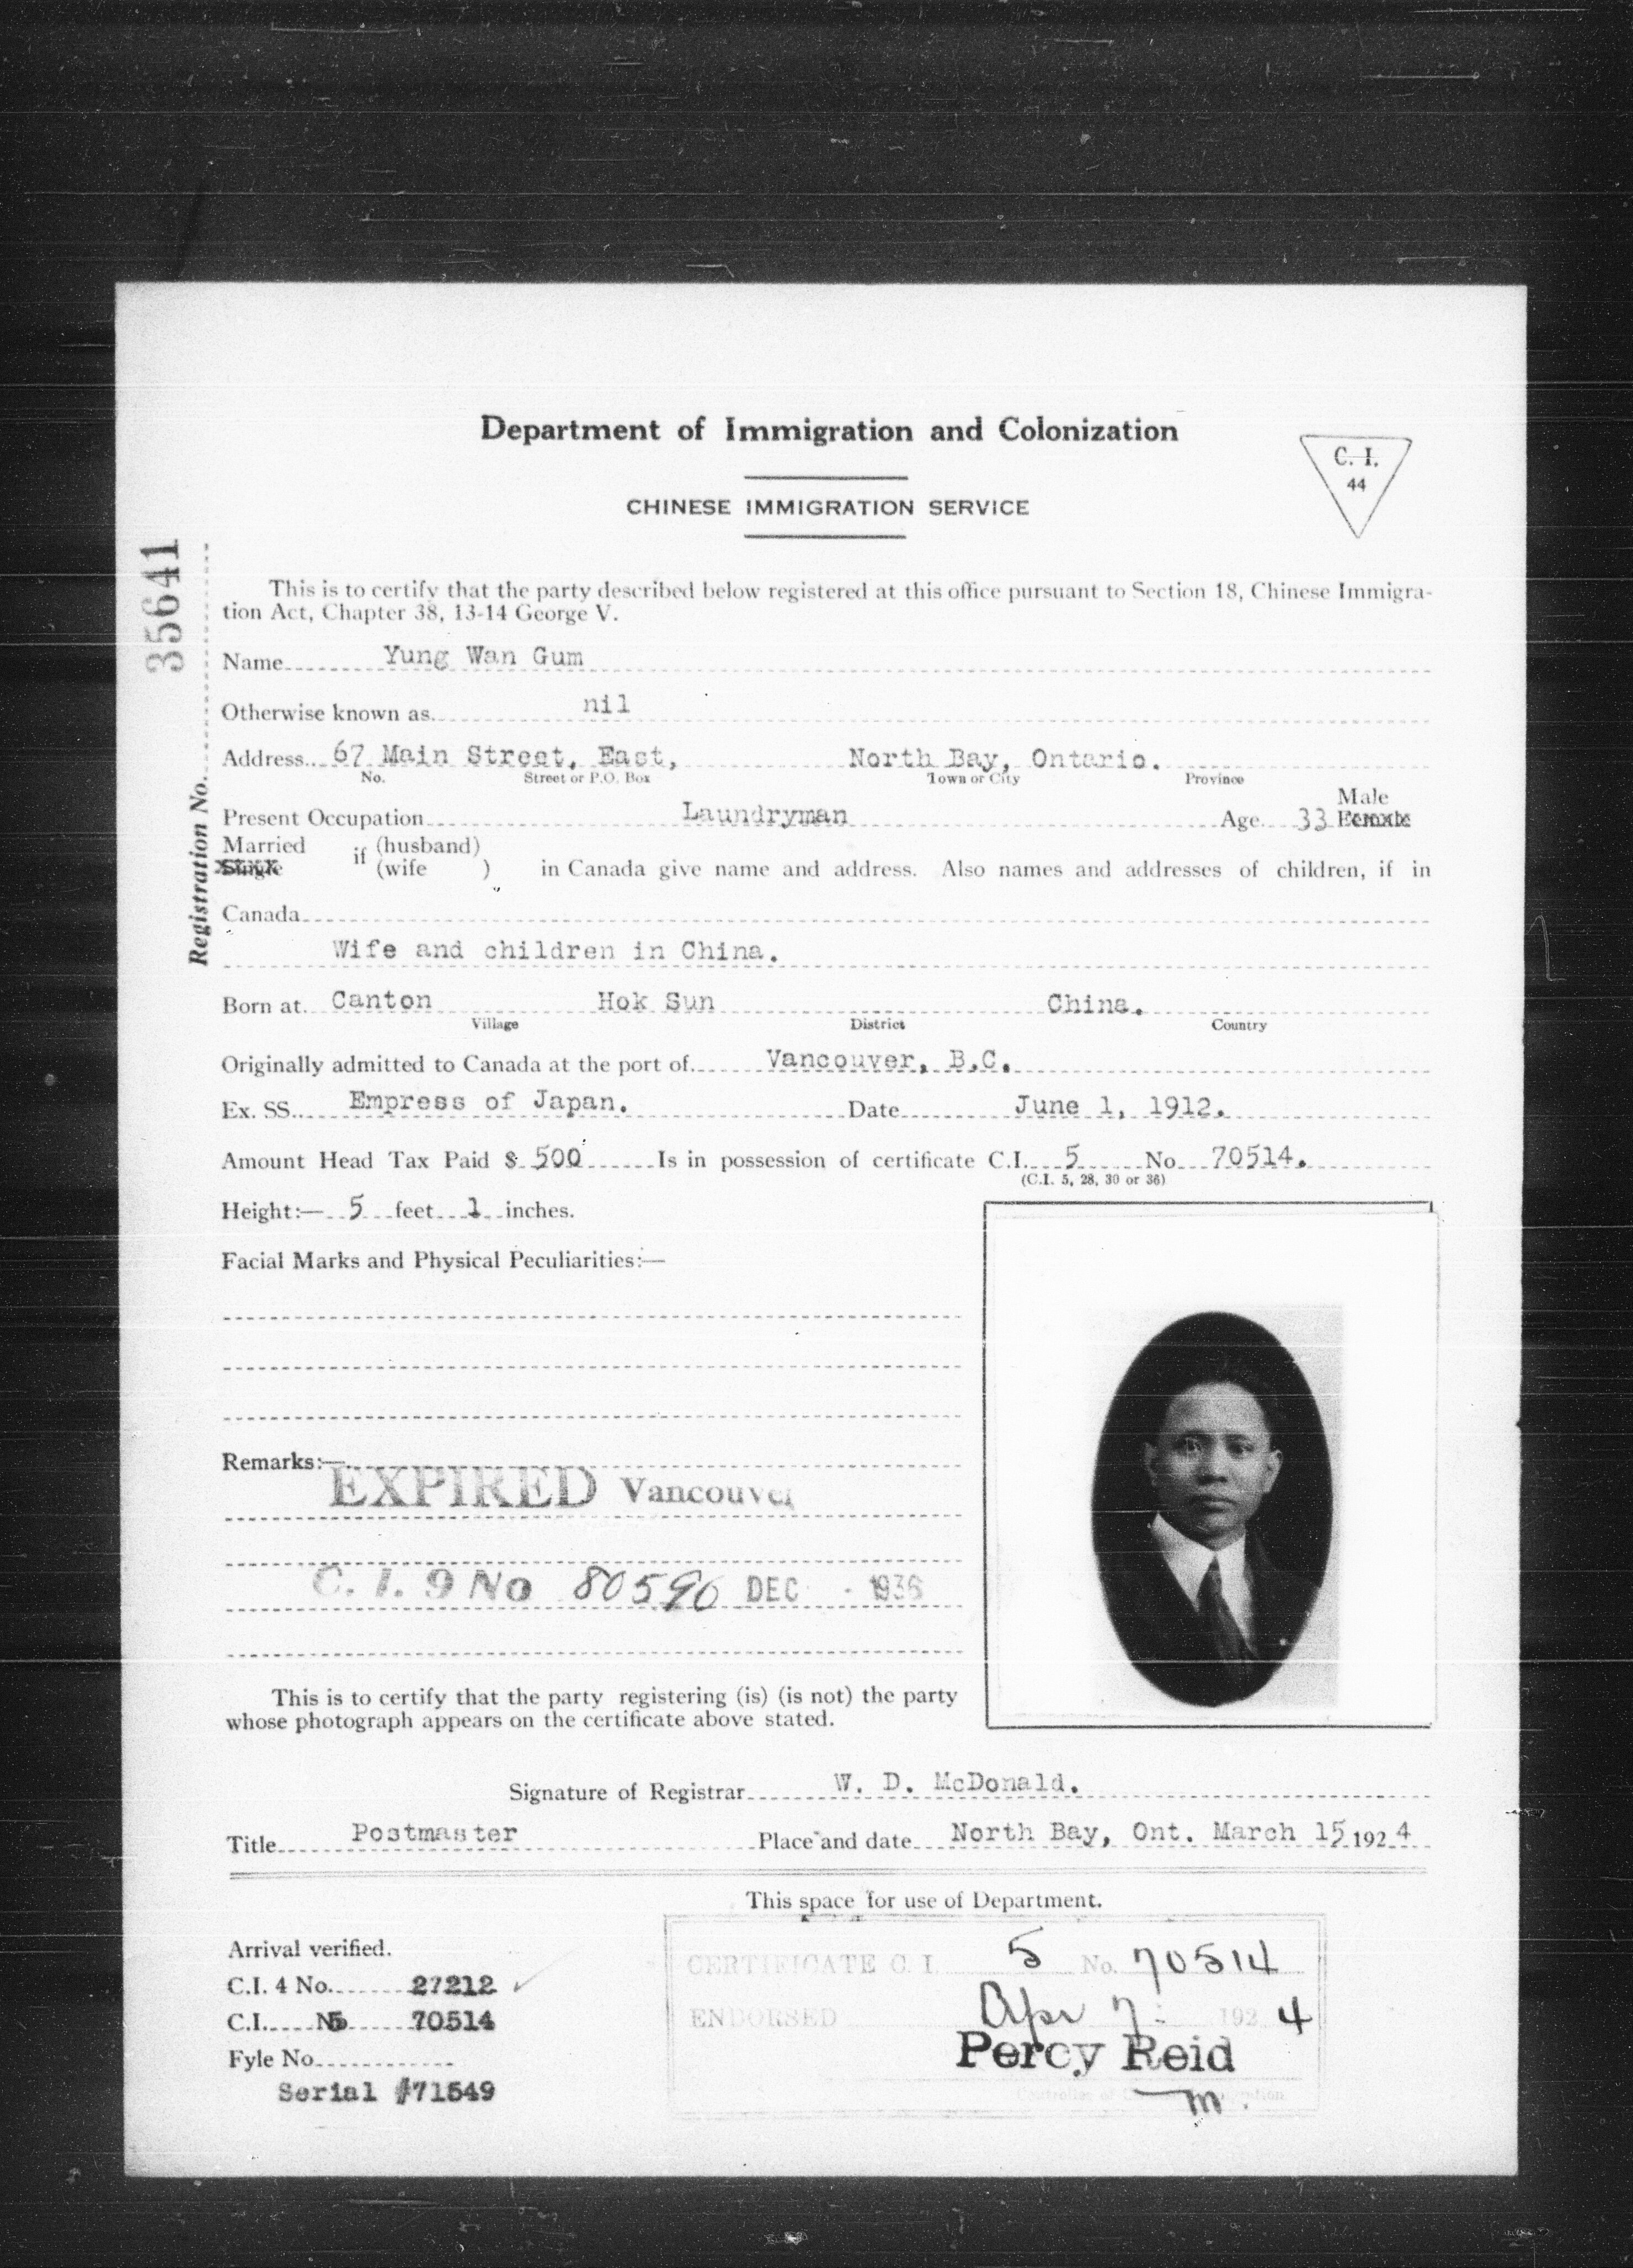 Department of Immigration and Colonization
C. I.
44
CHINESE IMMIGRATION SERVICE
Registration No. 35641
This is to certify that the party described below registered at this office pursuant to Section 18, Chinese Immigra-
tion Act, Chapter 38, 13-14 George V.
Name Yung Wan Gum
Otherwise known as nil
Address 67 Main Street, East, North Bay, Ontario.
No. Street or P.O. Box Town or City Province
Male
Present Occupation Laundryman Age 33 Female
Married if (husband)
Single (wife ) in Canada give name and address. Also names and addresses of children, if in
Canada
Wife and children in China.
Born at Canton Hok Sun China.
Village District Country
Originally admitted to Canada at the port of Vancouver, B.C.
Ex. SS. Empress of Japan. Date June 1, 1912.
Amount Head Tax Paid $ 500 Is in possession of certificate C.I. 5 No 70514.
(C.I. 5, 28, 30 or 36)
Height:— 5 feet 1 inches.
Facial Marks and Physical Peculiarities:—
Remarks:—
EXPIRED Vancouver
C. I. 9 No 80590 DEC 1936
This is to certify that the party registering (is) (is not) the party
whose photograph appears on the certificate above stated.
Signature of Registrar W. D. McDonald.
Title Postmaster Place and date North Bay, Ont. March 15 1924
This space for use of Department.
Arrival verified.
C.I. 4 No. 27212
C.I. 5 70514
Fyle No.
Serial #71549
CERTIFICATE C. I. 5 No. 70514
ENDORSED Apr 7 1924
Percy Reid
m.